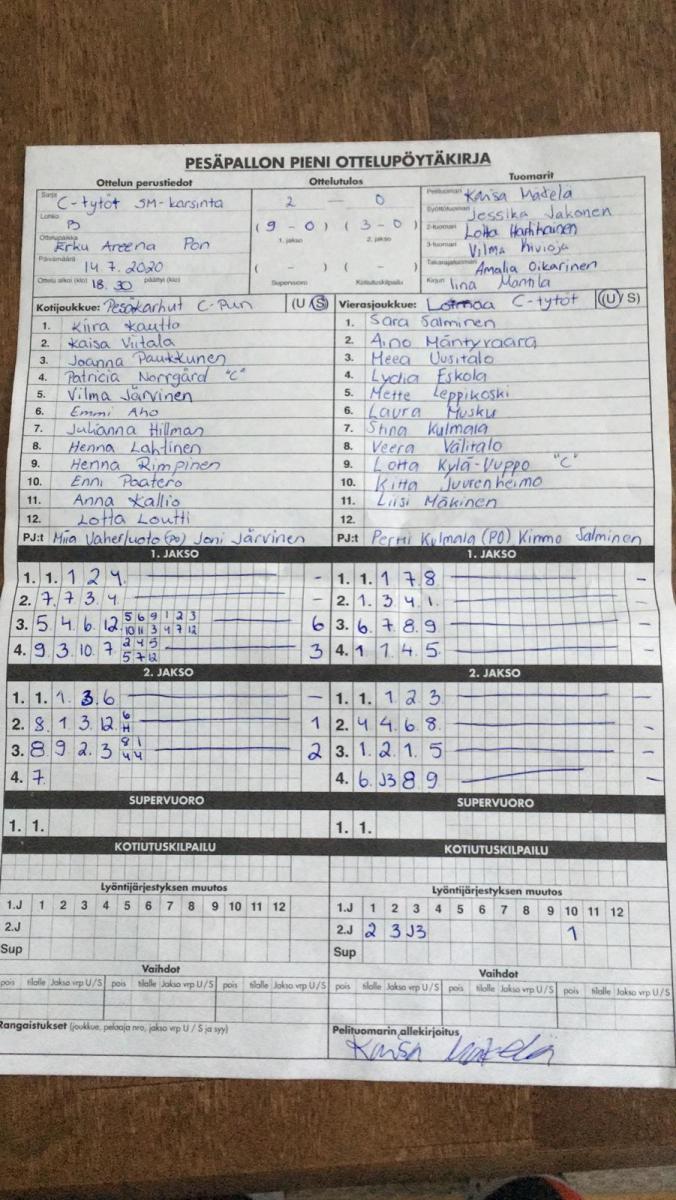 PESÄPALLON PIENI OTTELUPÖYTÄKIRJA
Ottelun perustiedot
Sarja C-tytöt SM-karsinta
Lohko B
Ottelupaikka Erku Areena Pori
Päivämäärä 14.7.2020
Ottelu alkoi (klo) 18.30 päättyi (klo)
Ottelutulos
2 — 0
(9-0) (3-0)
1. jakso 2. jakso
( - ) ( - )
Supervuoro Kotiutuskilpailu
Tuomarit
Pelituomari Kaisa Mäkelä
Syöttötuomari Jessika Jakonen
2-tuomari Lotta Harhkainen
3-tuomari Vilma Kivioja
Takarajatuomari Amalia Oikarinen
Kirjuri Iina Mantila
Kotijoukkue: Pesäkarhut C-Pun (U S)
1. Kiira Kautto
2. Kaisa Viitala
3. Joanna Paukkunen
4. Patricia Norrgård "C"
5. Vilma Järvinen
6. Emmi Aho
7. Julianna Hillman
8. Henna Lahtinen
9. Henna Rimpinen
10. Enni Paatero
11. Anna Kallio
12. Lotta Loutti
PJ:t Miia Vaherluoto (PO) Joni Järvinen
Vierasjoukkue: Loimaa C-tytöt (U S)
1. Sara Salminen
2. Aino Mäntyvaara
3. Meea Uusitalo
4. Lydia Eskola
5. Mette Leppikoski
6. Laura Musku
7. Stina Kulmala
8. Veera Välitalo
9. Lotta Kylä-Uuppo "C"
10. Kitta Juurenheimo
11. Liisi Mäkinen
12.
PJ:t Pertti Kulmala (PO) Kimmo Salminen
1. JAKSO
1. 1. 1 2 4. -
2. 7. 7 3. 4 -
3. 5 4. 6. 12 5 6 9 1 2 3 6
10 11 3 4 7 12
4. 9. 3. 10. 7. 2 4 5 3
5 7 12
1. JAKSO
1. 1. 1 7 8 -
2. 1. 3. 4 1. -
3. 6. 7. 8. 9 -
4. 1 1. 4. 5 -
2. JAKSO
1. 1. 1. 3 6 -
2. 8. 1 3. 12 6 1
11
3. 8 9 2. 3 8 1 2
4 4
4. 7.
2. JAKSO
1. 1. 1 2 3 -
2. 4 4 6. 8 -
3. 1. 2. 1. 5 -
4. 6. J3 8 9 -
SUPERVUORO
1. 1.
SUPERVUORO
1. 1.
KOTIUTUSKILPAILU
KOTIUTUSKILPAILU
Lyöntijärjestyksen muutos
1.J 1 2 3 4 5 6 7 8 9 10 11 12
2.J
Sup
Lyöntijärjestyksen muutos
1.J 1 2 3 4 5 6 7 8 9 10 11 12
2.J 2 3 J3 1
Sup
Vaihdot
pois tilalle Jakso vrp U/S pois tilalle Jakso vrp U/S pois tilalle Jakso vrp U/S
Vaihdot
pois tilalle Jakso vrp U/S pois tilalle Jakso vrp U/S pois tilalle Jakso vrp U/S
Rangaistukset (joukkue, pelaaja nro, jakso vrp U / S ja syy)
Pelituomarin allekirjoitus
Kaisa Mäkelä